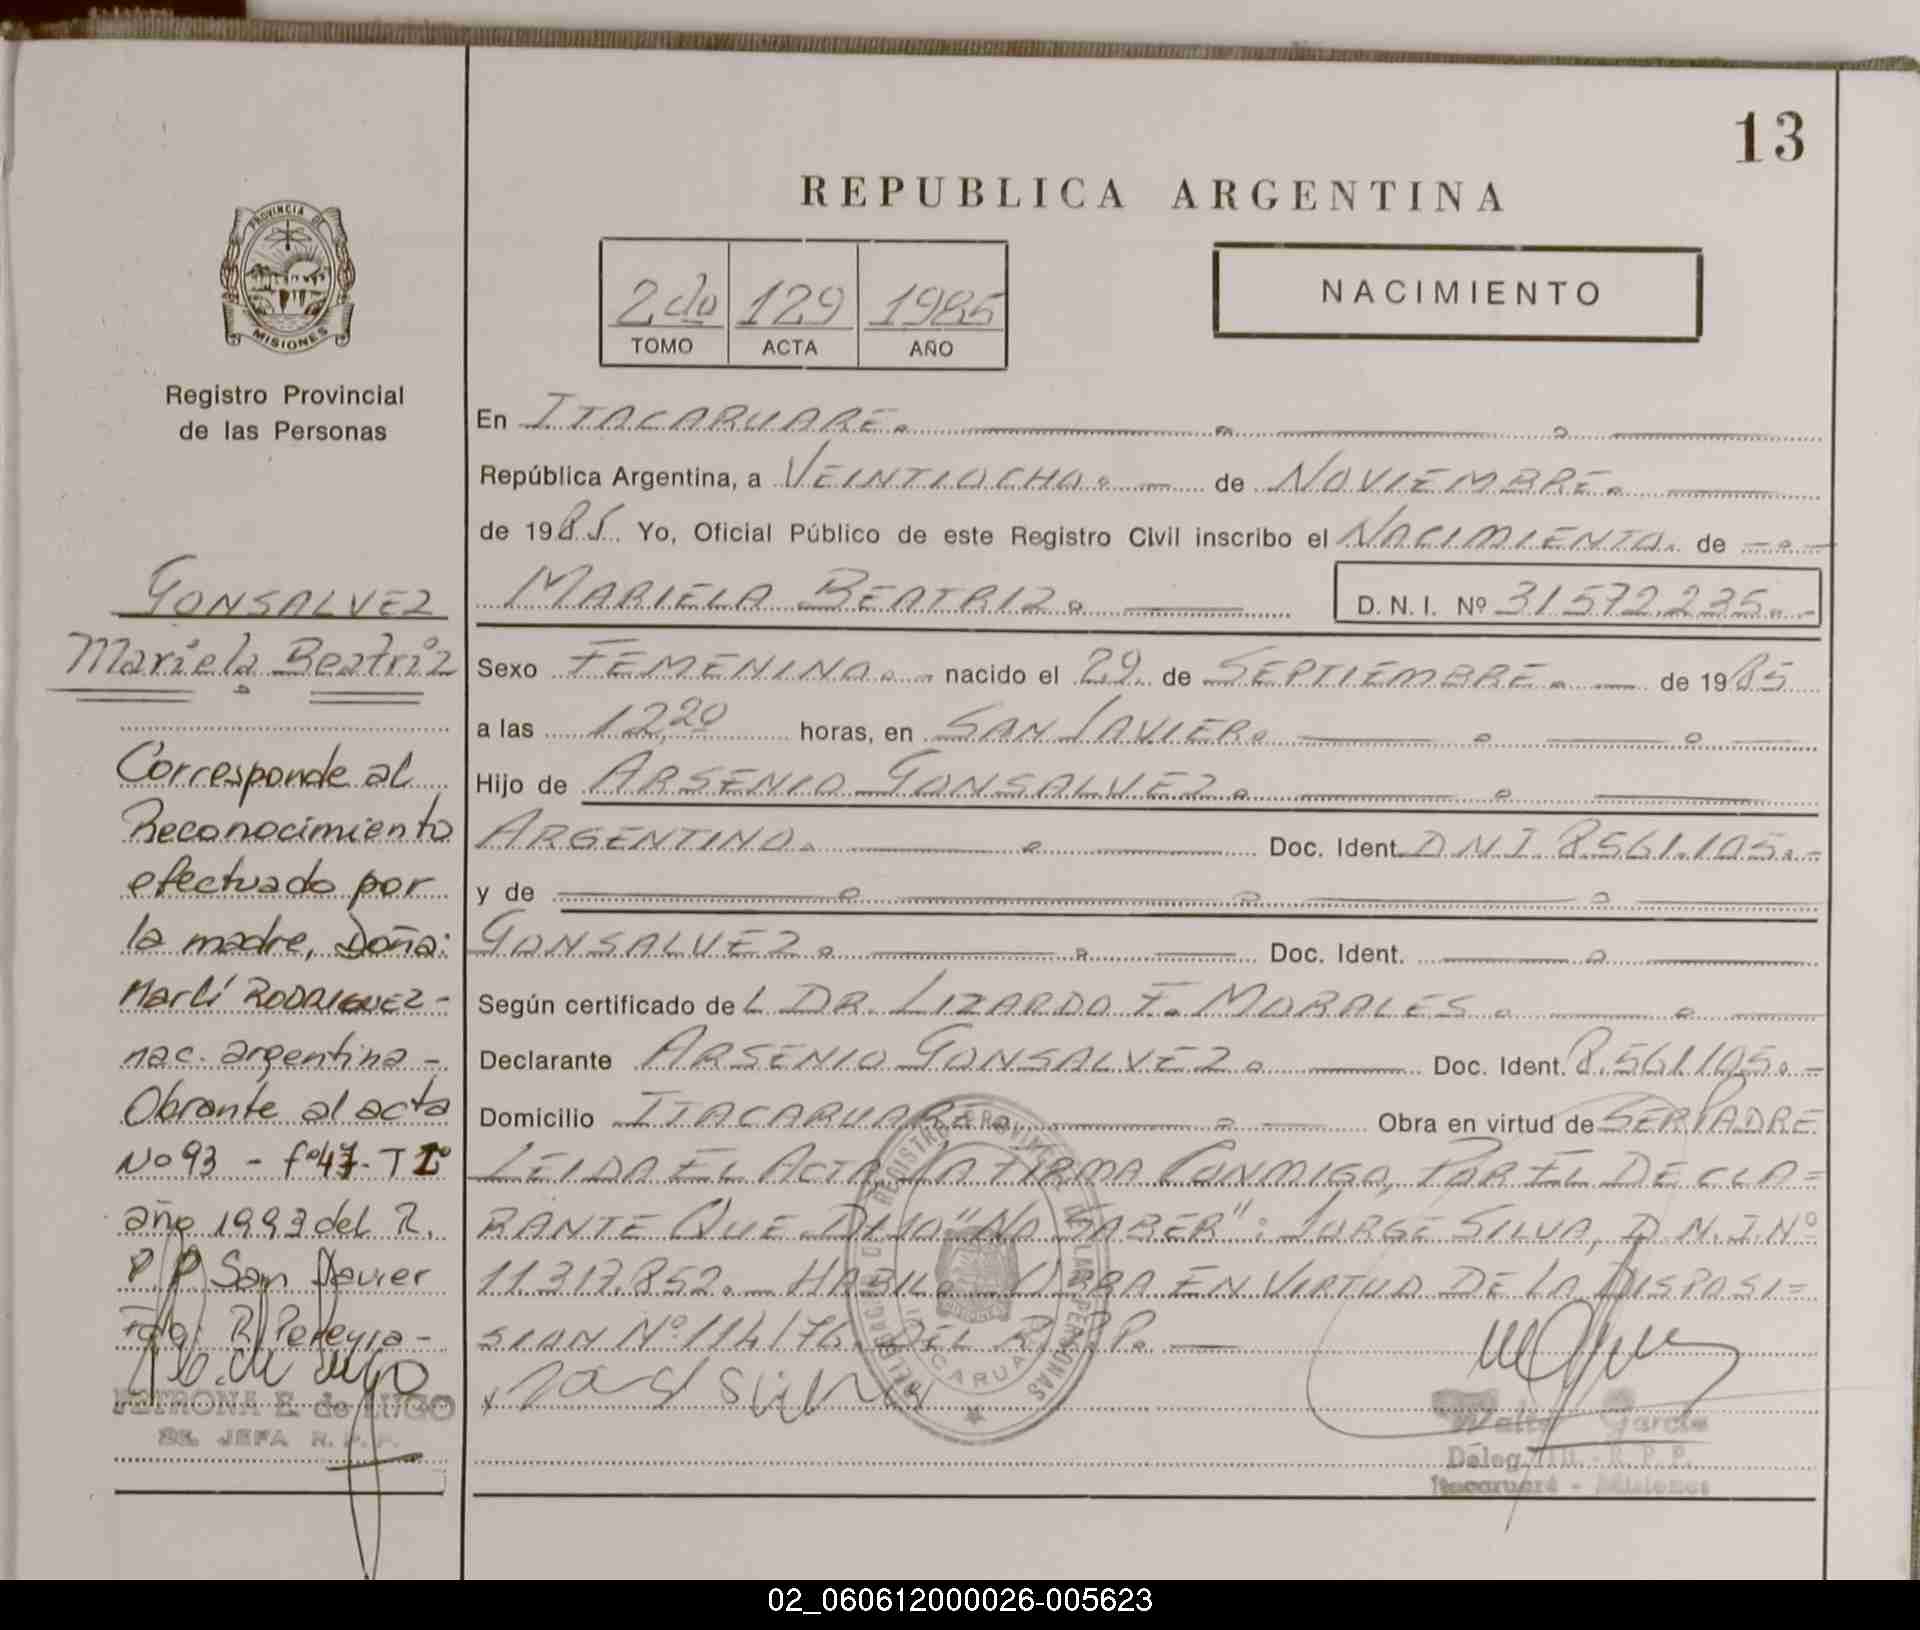 13
REPUBLICA ARGENTINA
PROVINCIA DE
MISIONES
Registro Provincial
de las Personas
2do 129 1985
TOMO ACTA AÑO
NACIMIENTO
GONSALVEZ
Mariela Beatriz
Corresponde al
Reconocimiento
efectuado por
la madre, Doña:
Marlí RODRIGUEZ -
nac. argentina -
Obrante al acta
No 93 - fº 47 - T Iº
año 1993 del R.
P.P. San Javier
Fdo: R. Pereyra -
PETRONA E. de LUGO
JEFA R. P. P.
En ITACARUARE.
República Argentina, a VEINTIOCHO. — de NOVIEMBRE.
de 1985. Yo, Oficial Público de este Registro Civil inscribo el NACIMIENTO. de
MARIELA BEATRIZ. D. N. I. Nº 31572.235. -
Sexo FEMENINO. - nacido el 29 de SEPTIEMBRE. — de 1985
a las 12,20 horas, en SAN JAVIER.
Hijo de ARSENIO GONSALVEZ.
ARGENTINO. Doc. Ident. D N I. 8.561.105. -
y de
GONSALVEZ. Doc. Ident.
Según certificado del DR. LIZARDO F. MORALES.
Declarante ARSENIO GONSALVEZ. Doc. Ident. 8.561.105. -
Domicilio ITACARUARE. Obra en virtud de SER PADRE
LEIDA EL ACTA LA FIRMA CONMIGO, POR EL DECLA=
RANTE QUE DIJO "NO SABER": JORGE SILVA, D.N.I. Nº
11.317.852. — HABIL. OBRA EN VIRTUD DE LA DISPOSI=
SION Nº 114/76. DEL R.P.P. —
Walter Garcia
Deleg. - R. P. P.
Itacaruaré - Misiones
02_060612000026-005623